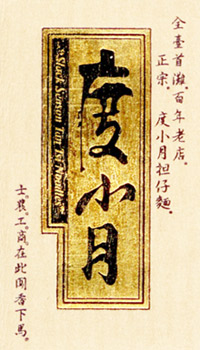 全臺首灘．百年老店．
正宗．度小月担仔麵．
度小月
Slack Season Tan Tsi Noodles
士．農．工．商．在此聞香下馬．